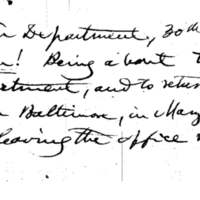 Department, 30th
! Being about
artment, and to retur
Baltimore, in Mary
leaving the office